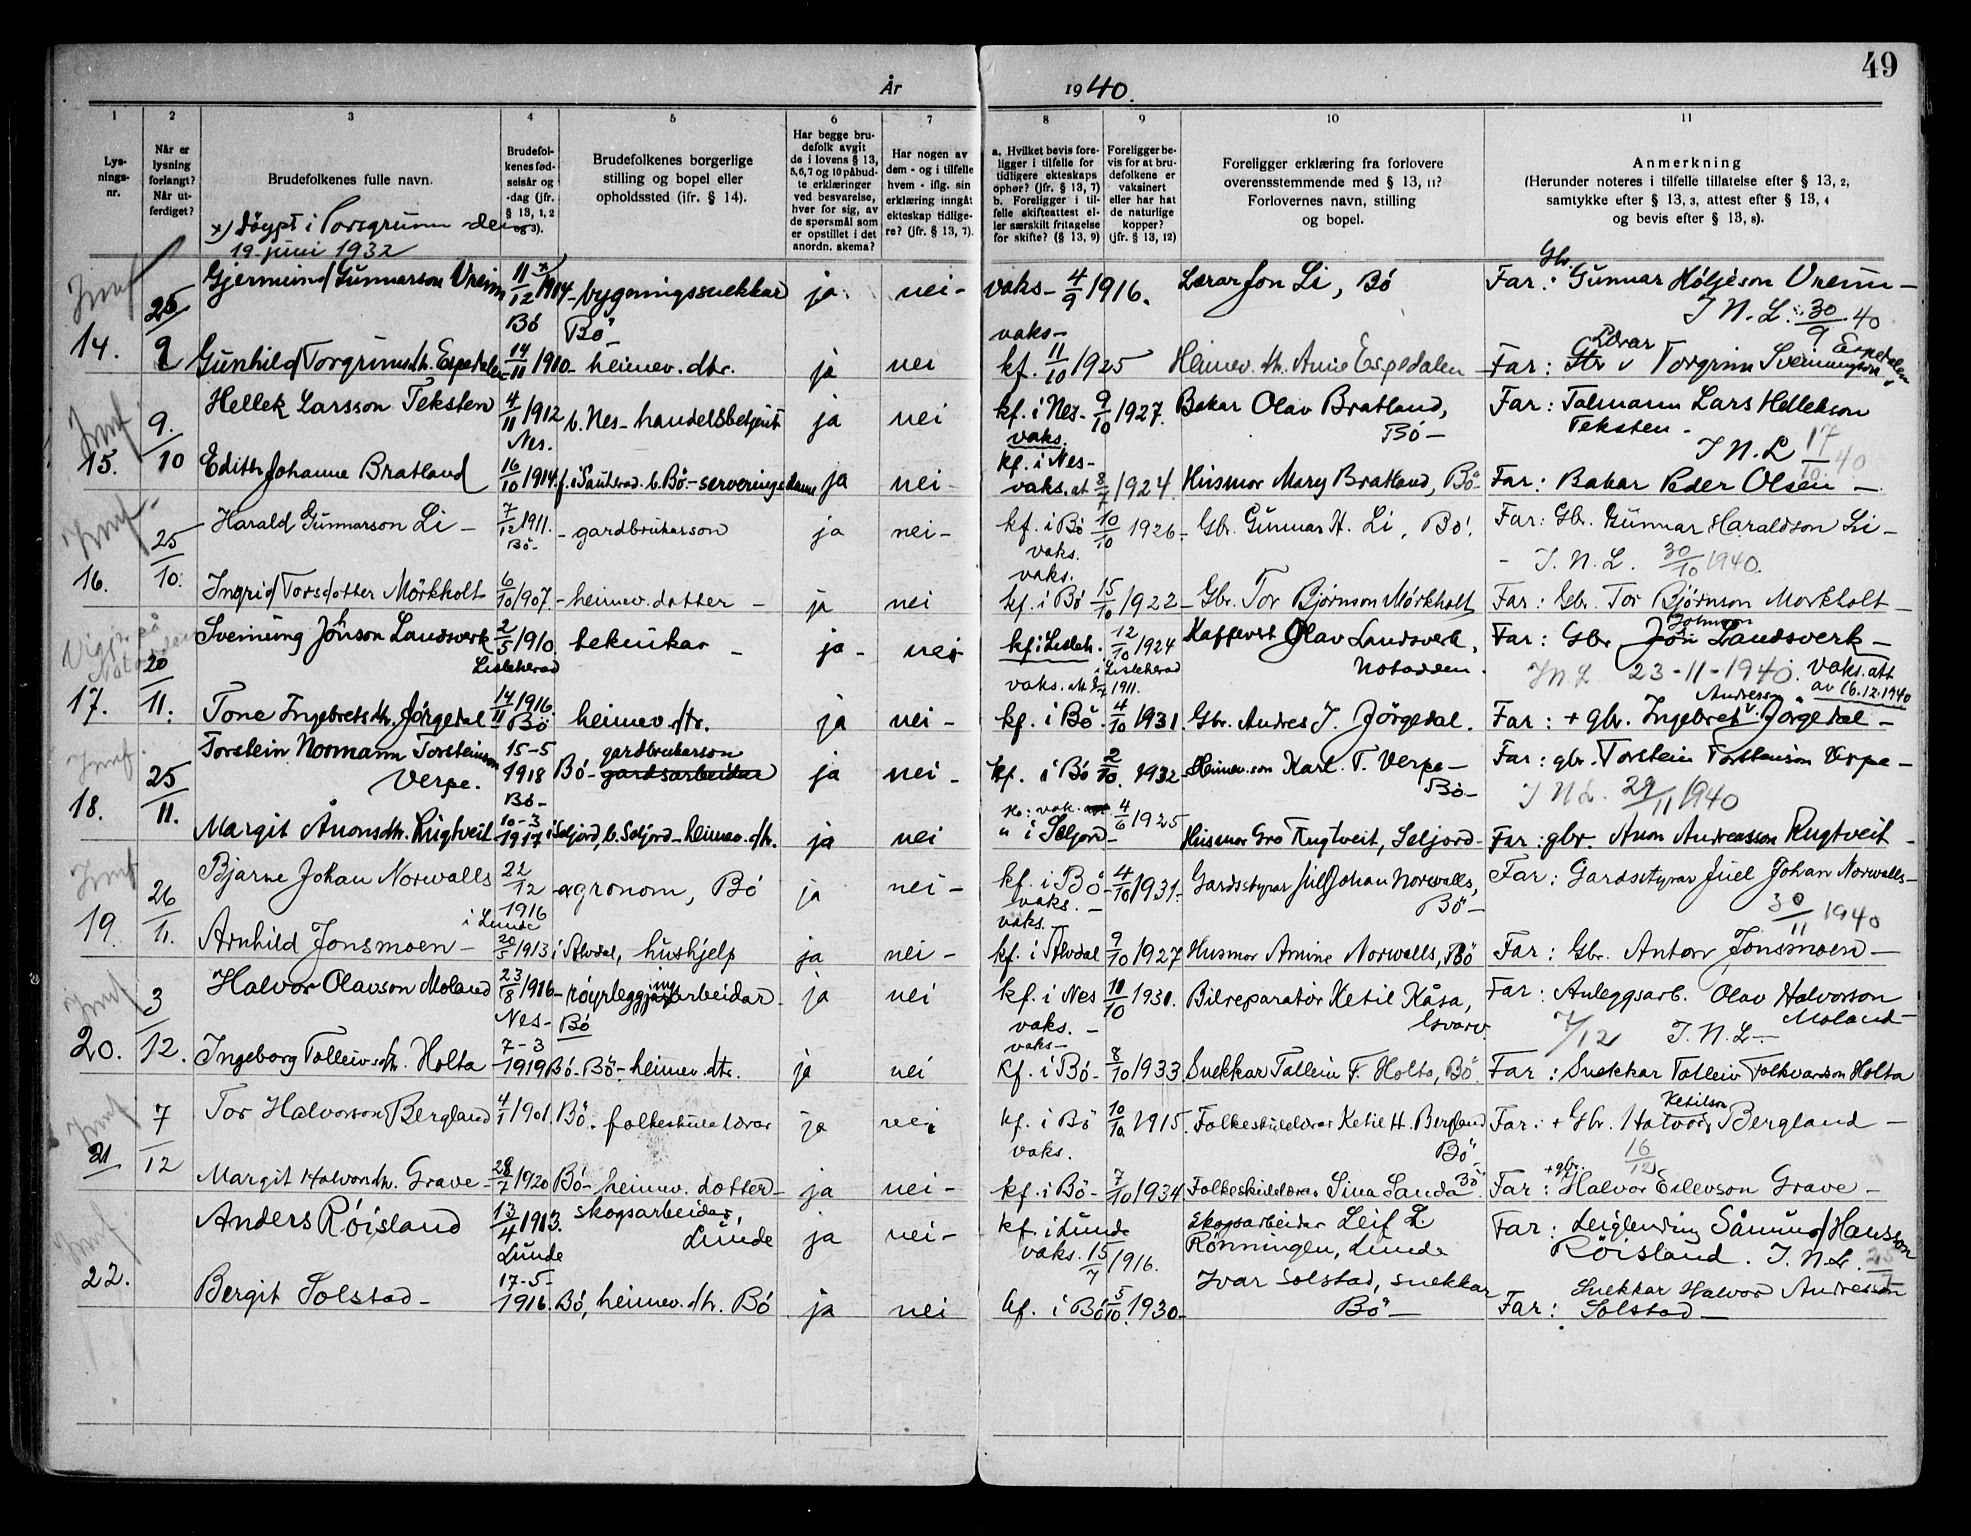 49
År 1940.
1 2 3 4 5 6 7 8 9 10 11
Lys-
nings-
nr.
Når er
lysning
forlangt?
Når ut-
ferdiget?
Brudefolkenes fulle navn.
Brudefol-
kenes fød-
selsår og
-dag (jfr.
§ 13, 1, 2
og 3).
Brudefolkenes borgerlige
stilling og bopel eller
opholdssted (jfr. § 14).
Har begge bru-
defolk avgit
de i lovens § 13,
5,6,7 og 10 påbud-
te erklæringer
ved besvarelse,
hver for sig, av
de spørsmål som
er opstillet i det
anordn. skema?
Har nogen av
dem - og i tilfelle
hvem - iflg. sin
erklæring inngått
ekteskap tidlige-
re? (jfr. § 13, 7).
a. Hvilket bevis fore-
ligger i tilfelle for
tidligere ekteskaps
ophør? (jfr. § 13, 7)
b. Foreligger i til-
felle skifteattest el-
ler særskilt fritagelse
for skifte? (§ 13, 9)
Foreligger be-
vis for at bru-
defolkene er
vaksinert
eller har hat
de naturlige
kopper?
(jfr. § 13, 12)
Foreligger erklæring fra forlovere
overensstemmende med § 13, 11?
Forlovernes navn, stilling
og bopel.
Anmerkning
(Herunder noteres i tilfelle tillatelse efter § 13, 2,
samtykke efter § 13, 3, attest efter § 13, 4
og bevis efter § 13, 8).
x) döypt i Porsgrunn den
19. juni 1932
14. 25/9 Gjermund Gunnarson Vreim 11/12 x) 1914 - bygningssnekkar ja. nei- vaks- 4/9 1916. Lærar Jon Li, Bö Far: Gbr. Gunnar Höljeson Vreim -
Bö Bö- I N. L. 30/9 40
vaks-
Gunhild Torgrimsdt. Espedalen 14/11 1910 - heimev. dtr. ja nei kf. 11/10 1925 Heimev. dt. Anne Espedalen Far: Lærar Torgrim Sveinungson Espedalen
15. 9./10 Hellek Larsson Teksten 4/11 1912 b. Nes - handelsbetjent ja nei kf. i Nes 9/10 1927. Bakar Olav Bratland, Far: Talmann Lars Hellekson
Nes. vaks. Bö- Teksten -
I N. L 17/10 40
kf. i Nes-
Edith Johanne Bratland 16/10 1914 f. i Sauherad. b. Bö.- serveringsdame ja nei- vaks. at 8/7 1924. Husmor Mary Bratland, Bö- Far: Bakar Peder Olsen -
16. 25/10. Harald Gunnarson Li - 7/12 1911. - gardbrukarson ja nei- kf. i Bö 10/10 1926- Gbr. Gunnar H. Li, Bö. Far: Gbr. Gunnar Haraldson Li -
Bö- vaks. - I. N. L. 30/10 1940.
vaks.
Ingrid Torsdotter Mörkholt 6/10 1907 - heimev. dotter - ja nei kf. i Bö 15/10 1922- Gbr. Tor Björnson Mörkholt Far: Gbr. Tor Björnson Morkholt -
Vigjr. på
Notodden
17. 20/11. Sveinung Jönson Landsverk 2/5 1910 teknikar - ja- nei kf. i Lisleh. 12/10 1924 Kaffevert Olav Landsverk, Far: Gbr. Jon Johnson Landsverk -
Lisleherad i Lisleherad Notodden. I N L 23-11-1940. vaks. att
1911. av 16.12.1940
Tone Ingebretsdt. Jörgedal 14/11 1916 Bö heimev. dtr. ja nei- kf. i Bö. 4/10 1931. Gbr. Andres I. Jörgedal. Far: + gbr. Ingebret Andresson Jörgedal -
18. 25/11. Torstein Normann Torsteinson 15-5 gardbrukarson
Verpe. 1918 Bö- gardsarbeidar ja nei- kf. i Bö 2/10. 1932- Heimev. son Karl T. Verpe- Far: gbr. Torstein Torsteinson Verpe -
Bö- Bö- I N L. 29/11 1940
10-3 vak. 4/6 1925
Margit Ånonsdt. Rugtveit 1917 i Seljord, b. Seljord - heimev. dtr. ja nei " i Seljord- Husmor Gro Rugtveit, Seljord- Far: gbr. Anon Andreasson Rugtveit -
19. 26/11. Bjarne Johan Norwalls 22/12 1916 - agronom, Bö ja nei- kf. i Bö- 4/10 1931- Gardsstyrar Juel Johan Norwalls, Far: Gardsstyrar Juel Johan Norwalls-
i Lunde vaks.- Bö- 30/11 1940
vaks.
Arnhild Jonsmoen - 20/5 1913 i Alvdal, hushjelp ja nei- kf. i Alvdal 9/10 1927 Husmor Amine Norwalls, Bö Far: Gbr. Anton Jonsmoen -
20. 3/12. Halvor Olavson Moland 23/8 1916 - röyrleggingsarbeidar ja nei kf. i Nes 10/10 1930. Bilreparatør Ketil Kåsa, Far: Anleggsarb. Olav Halvorson
Nes- Bö vaks. - Gvarv Moland
7/12 I. N. L-
7-3 vaks-
Ingeborg Tolleivsdt. Holta 1919 Bö- Bö- heimev. dtr. ja nei kf. i Bö- 8/10 1933. Snekkar Tolleiv F. Holta, Bö. Far: Snekkar Tolleiv Folkvardson Holta
21 7/12 Tor Halvorson Bergland 4/1 1901. Bö. folkeskulelærar ja nei kf. i Bö 10/10 1915. Folkeskulelærar Ketil H. Bergland Far: + Gbr. Halvor Ketilson Bergland -
vaks. Bö- 16/12
Margit Halvorsdt. Grave- 28/7 1920 Bö- heimev. dotter- ja nei- kf. i Bö- 7/10 1934 Folkeskulelærar Sina Sanda Bö. Far: + gbr. Halvor Eilevson Grave -
22. Anders Röisland 13/4 1913. skogsarbeidar, ja nei- kf. i Lunde Skogsarbeidar Leif L. Far: Leiglending Såmund Hansson
Lunde Lunde vaks. 15/7 1916. Rönningen, Lunde Röisland. I. N. L.
17-5- Ivar Solstad, snekkar Snekkar Halvor Andresson
Bergit Solstad- 1916. Bö, heimev. dtr. Bö ja nei kf. i Bö 5/10. 1930- Bö- Far: Solstad -